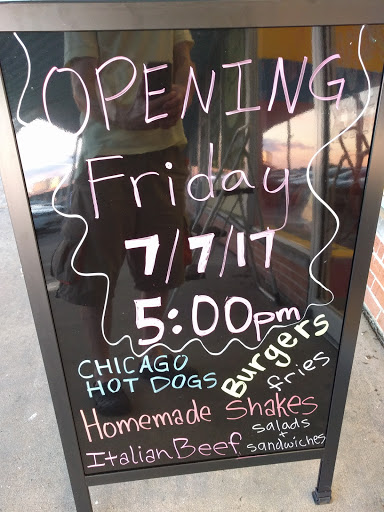 OPENING
Friday
7/7/17
5:00pm
CHICAGO
HOT DOGS
Burgers
fries
Homemade Shakes
Italian Beef
salads
+
sandwiches